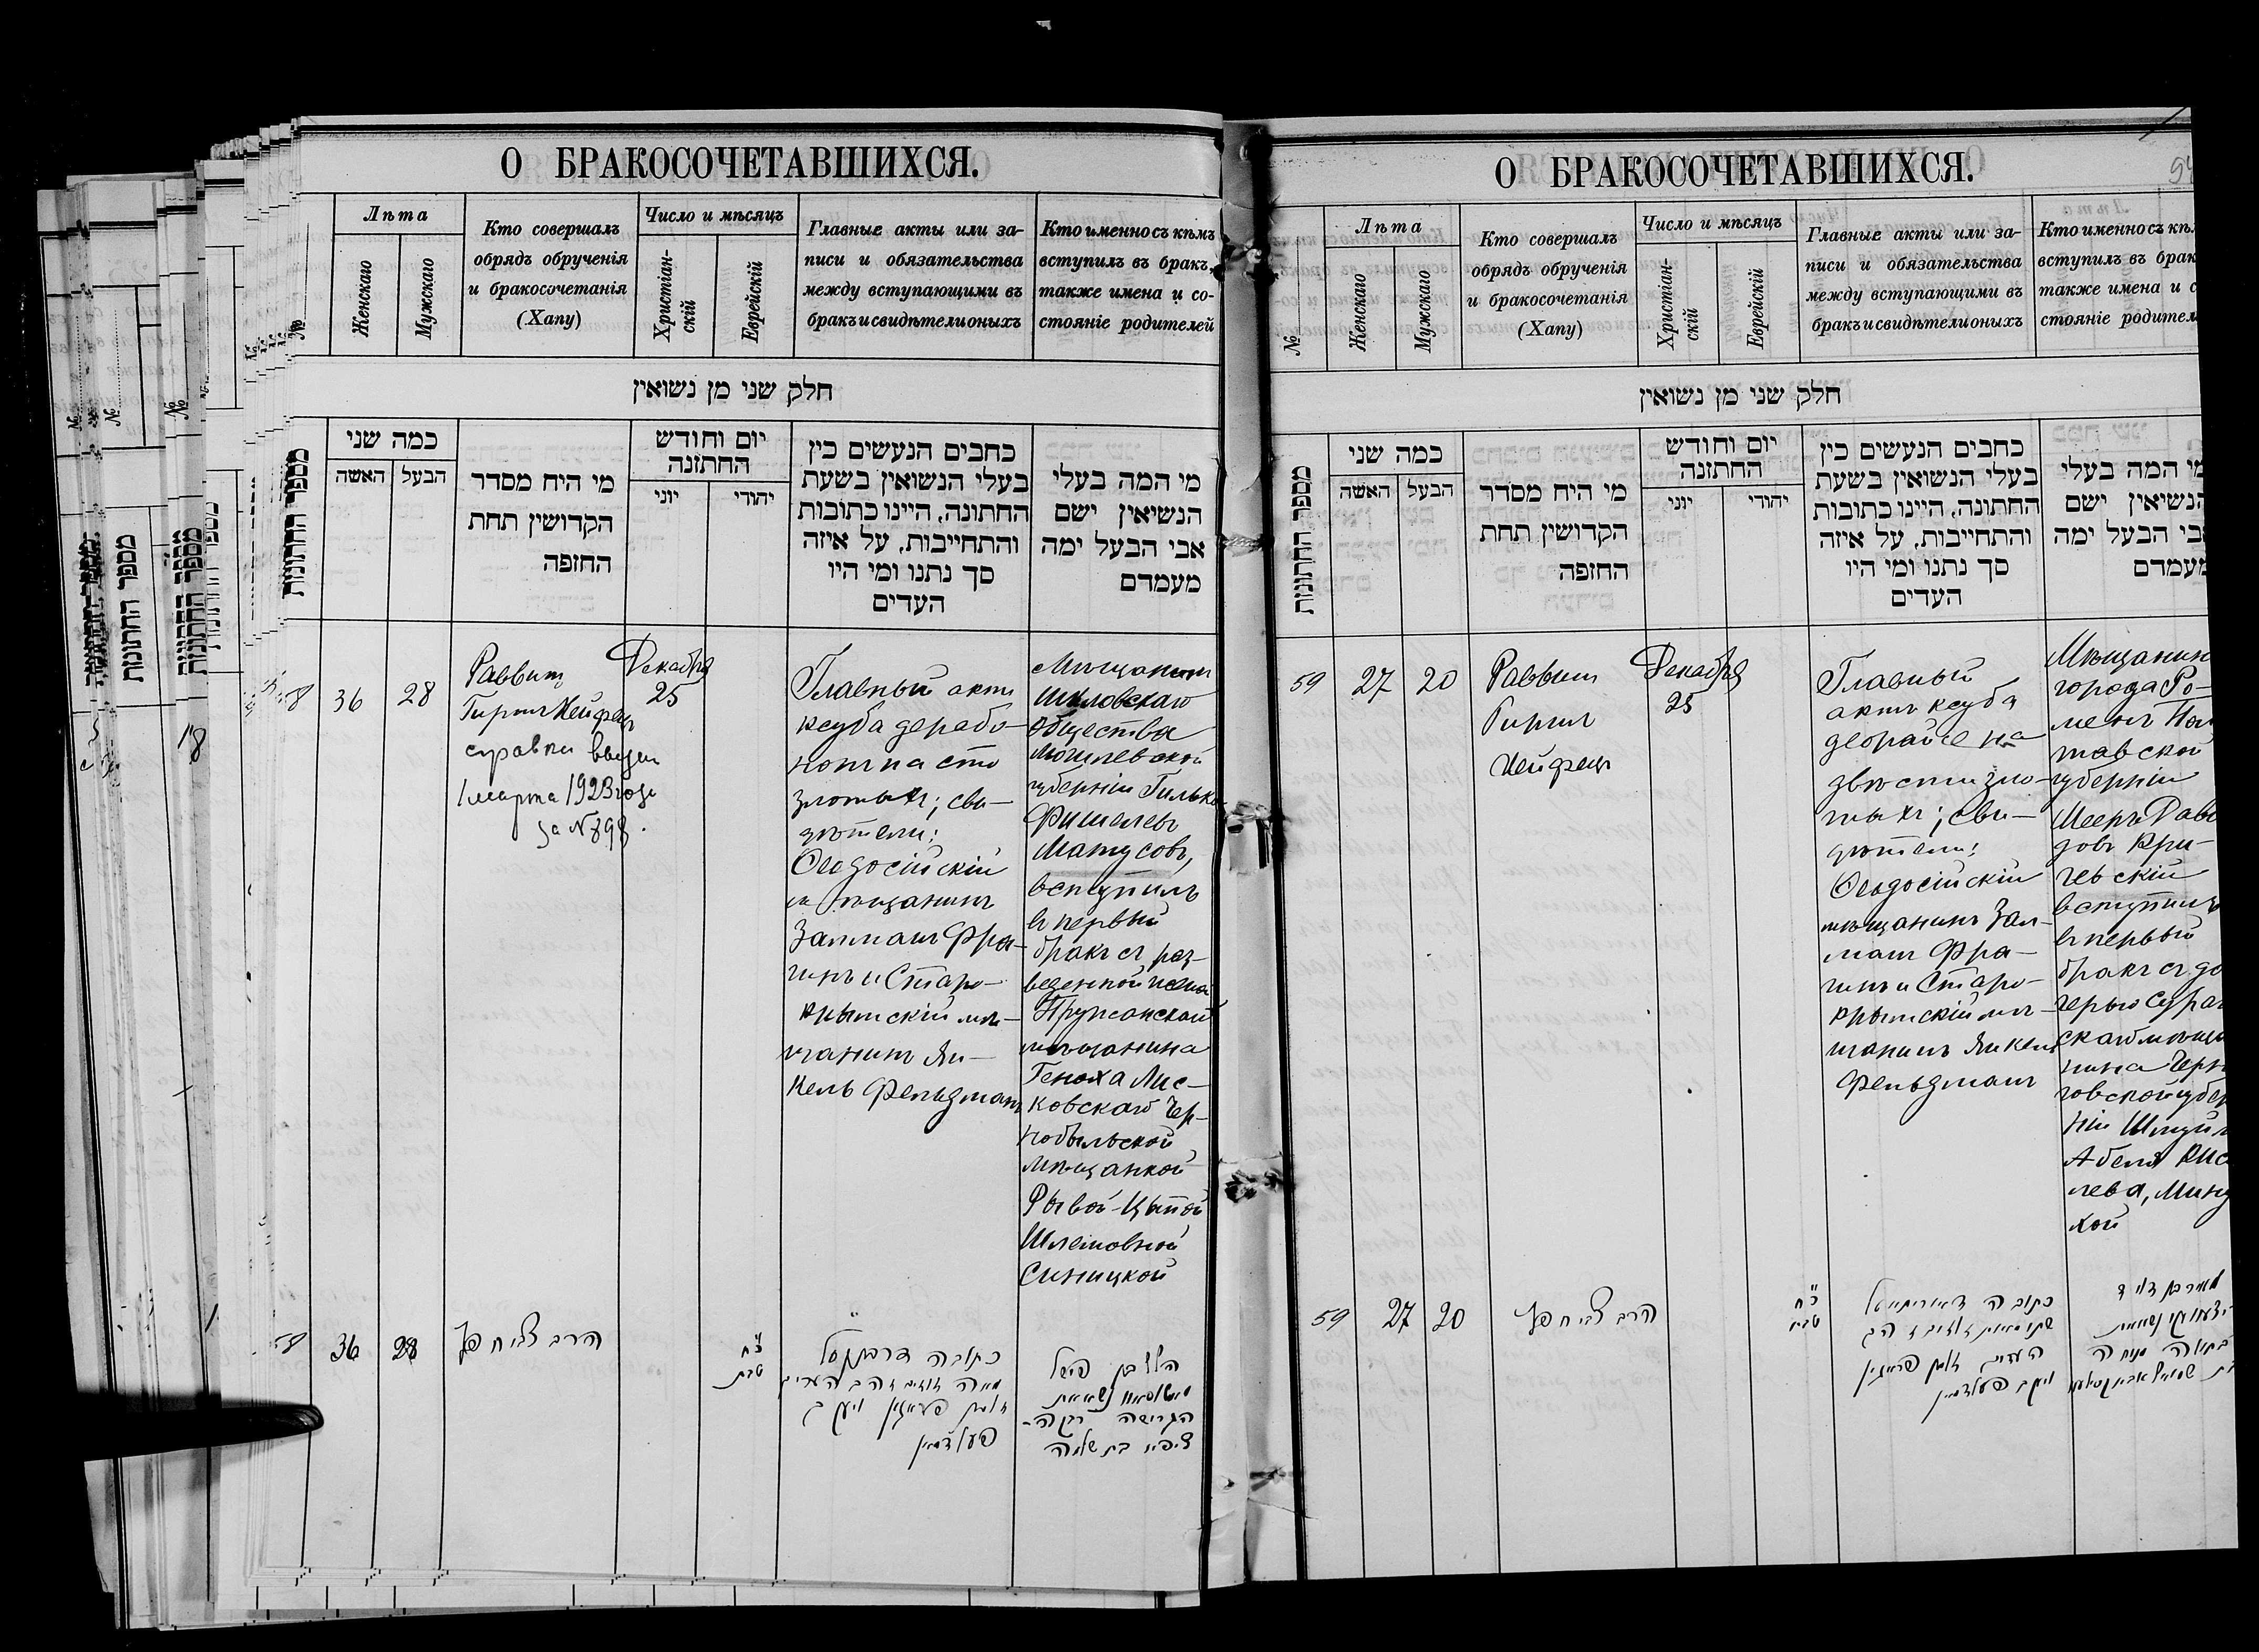 О БРАКОСОЧЕТАВШИХСЯ.
№
Лѣта
Женскаго
Мужскаго
Кто совершалъ
обрядъ обрученія
и бракосочетанія
(Хапу)
Число и мѣсяцъ
Христіан-
скій
Еврейскій
Главные акты или за-
писи и обязательства
между вступающими въ
бракъ и свидѣтели оныхъ
Кто именно съ кѣмъ
вступилъ въ бракъ,
также имена и со-
стояніе родителей
חלק שני מן נשואין
מספר החתונות
כמה שני
האשה
הבעל
מי היח מסדר
הקדושין תחת
החזפה
יום וחודש
החתזנה
יוני
יהודי
כחבים הנעשים כין
בעלי הנשואין בשעת
החתונה, היינו כתובות
והתחייבות, על איזה
סך נתנו ומי היו
העדים
מי המה בעלי
הנשיאין ישם
אבי הבעל ימה
מעמדם
58
36
28
Раввинъ
Гиршъ Хейфецъ
справки выдан
1 марта 1923 года
за № 898.
Декабря
25
Главный актъ
ксуба дерабо-
нонъ на сто
злотыхъ; сви-
дѣтели:
Ѳеодосійскій
мѣщанинъ
Залманъ Фра-
гинъ и Старо-
крымскій мѣ-
щанинъ Ян-
кель Фельдманъ
Мѣщанинъ
Шкловскаго
общества
Могилевской
губерніи Гилько
Фишелевъ
Матусовъ,
вступилъ
въ первый
бракъ съ раз-
веденной женой
Пружанскаго
мѣщанина
Геноха Лис-
ковскаго Чер-
нобыльской
мѣщанкой
Рывой-Цыпой
Шлемовной
Синицкой
58
36
28
הרב צבי חפץ
טבת
כתובה
מאה זוזים זהב העדים
זלמן פראגין ויעקב
פעלדמאן
הלל בן פישל
הגרושה רבקה-
ציפא בת שלמה
О БРАКОСОЧЕТАВШИХСЯ.
94
№
Лѣта
Женскаго
Мужскаго
Кто совершалъ
обрядъ обрученія
и бракосочетанія
(Хапу)
Число и мѣсяцъ
Христіан-
скій
Еврейскій
Главные акты или за-
писи и обязательства
между вступающими въ
бракъ и свидѣтели оныхъ
Кто именно съ кѣм
вступилъ въ брак
также имена и с
стояніе родител
חלק שני מן נשואין
מספר החתונות
כמה שני
האשה
הבעל
מי היח מסדר
הקדושין תחת
החזפה
יום וחודש
החתזנה
יוני
יהודי
כחבים הנעשים כין
בעלי הנשואין בשעת
החתונה, היינו כתובות
והתחייבות, על איזה
סך נתנו ומי היו
העדים
מי המה בעלי
הנשיאין ישם
אבי הבעל ימה
מעמדם
59
27
20
Раввинъ
Гиршъ
Хейфецъ
Декабря
25
Главный
актъ ксуба
деорайсе на
двѣсти зло-
тыхъ; сви-
дѣтели:
Ѳеодосійскій
мѣщанинъ Зал-
манъ Фра-
гинъ и Старо-
крымскій мѣ-
щанинъ Янкель
Фельдманъ
Мѣщанин
города Ро-
менъ Пол
тавской
губерніи
Мееръ Давы
довъ Кри-
чевскій
вступилъ
въ первый
бракъ съ до
черью Сураж
скаго мѣща
нина Черн
говской губер
ніи Шмуйл
Абеля Кис
лева, Минух
кой
59
27
20
הרב צבי חפץ
טבת
כתובה דאורייתא
העדים זלמן פראגין
ויעקב פעלדמאן
מאיר בן דוד